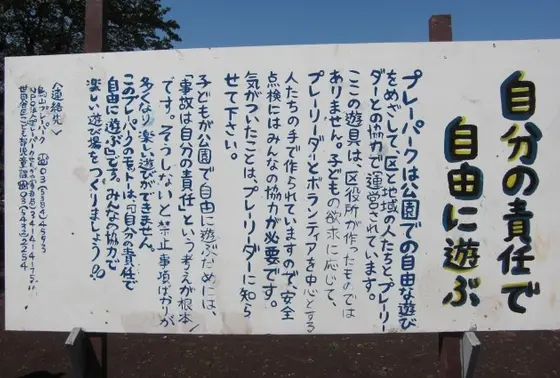 自分の責任で
自由に遊ぶ
プレーパークは公園での自由な遊び
をめざして、区と地域の人たちと、プレーリー
ダーとの協力で運営されています。
ここの遊具は、区役所が作ったものでは
ありません。子どもの欲求に応じて、
プレーリーダーとボランティアを中心とする
人たちの手で作られていますので、安全
点検にはみんなの協力が必要です。
気がついたことは、プレーリーダーに知ら
せて下さい。
子どもが公園で自由に遊ぶためには、
「事故は自分の責任」という考えが根本
です。そうしないと禁止事項ばかりが
多くなり楽しい遊びができません。
このプレーパークのモットーは、「自分の責任で
自由に遊ぶ」です。みんなの協力で
楽しい遊び場をつくりましょう!!
〈連絡先〉
烏山プレーパーク
NPO法人プレーパークせたがや
世田谷区